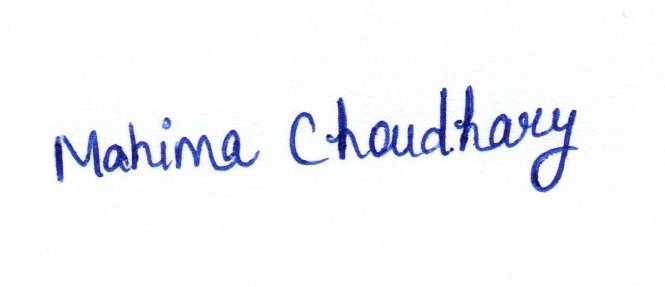 Mahima Choudhary